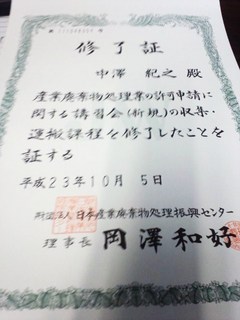 修了証
中澤 範之 殿
産業廃棄物処理業の許可申請に
関する講習会(新規)の収集・
運搬課程を修了したことを
証する
平成23年10月 5日
財団法人日本産業廃棄物処理振興センター
理事長 岡澤和好